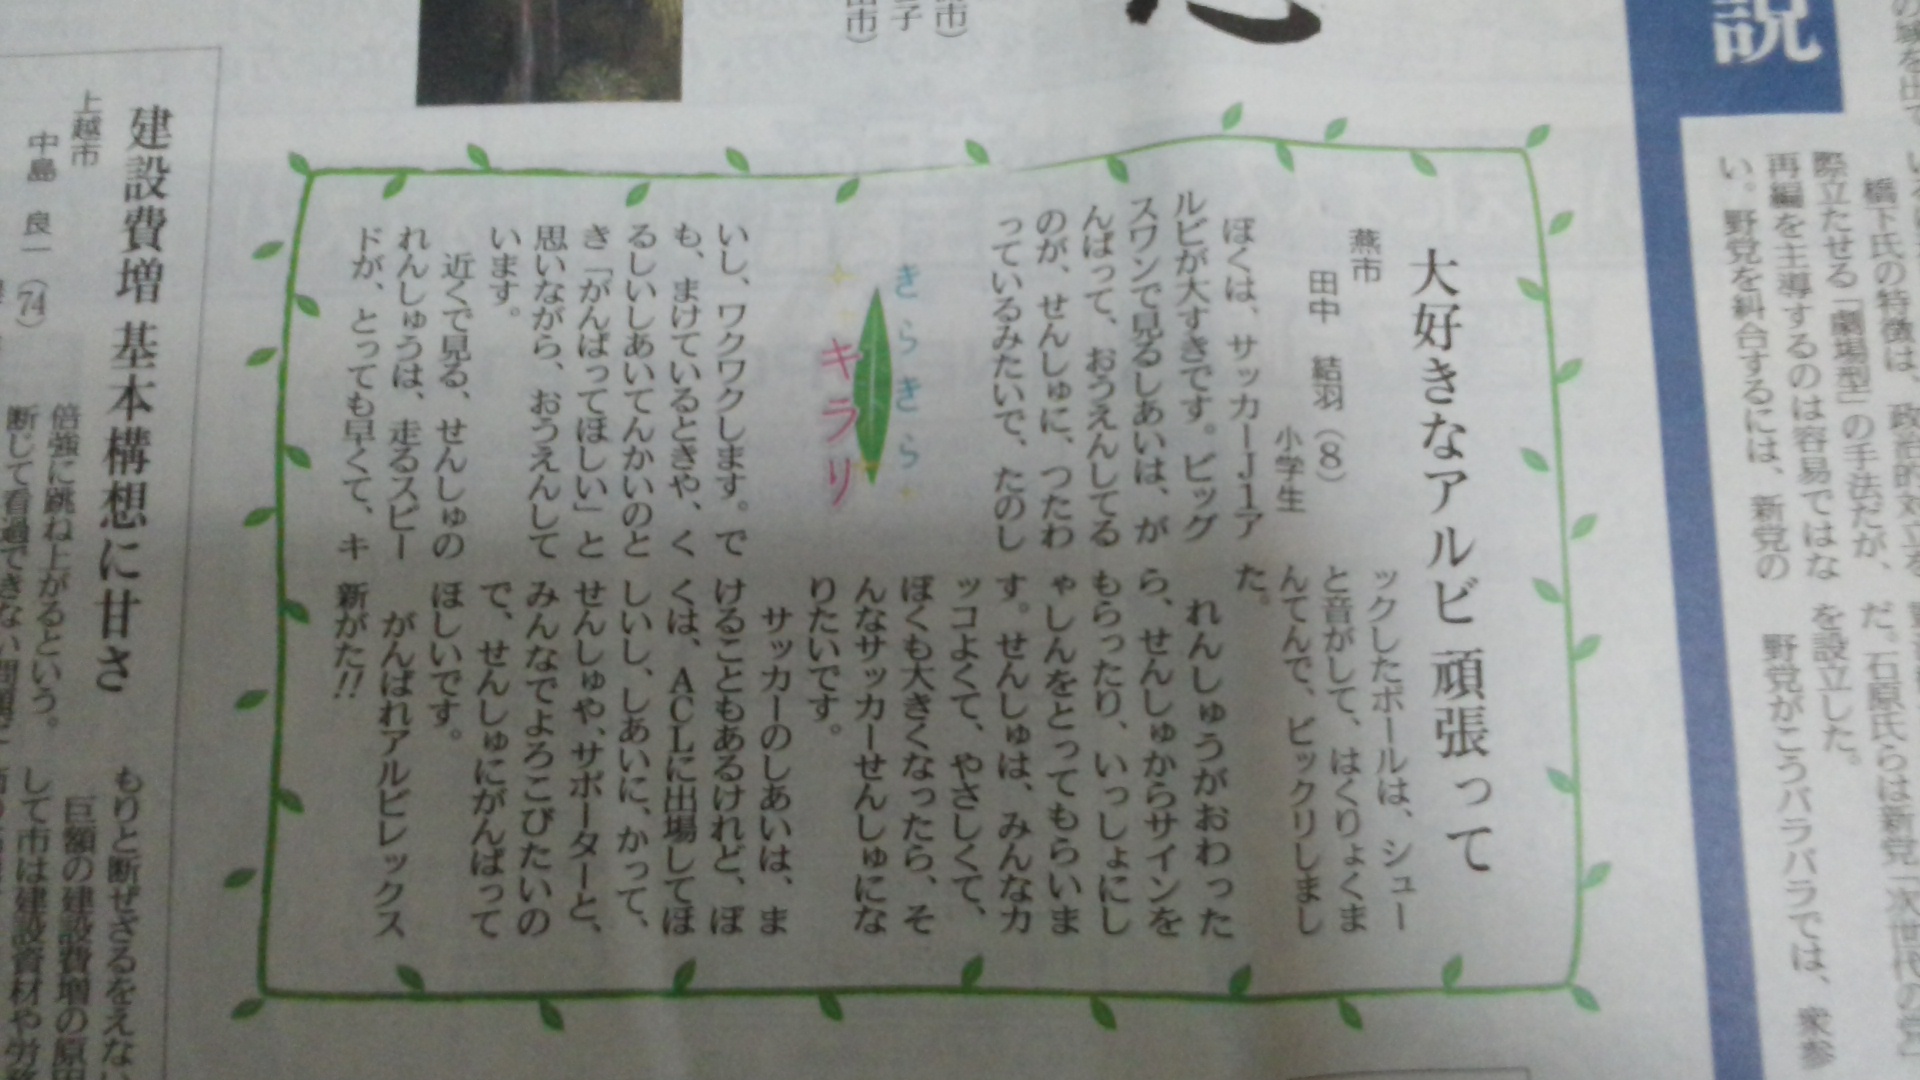 説
際立たせる「劇場型」の手法だが、
再編を主導するのは容易ではな
い。野党を糾合するには、新党の
だ。石原氏らは新党「次世代の党」
を設立した。
野党がこうバラバラでは、衆参
大好きなアルビ 頑張って
燕市
田中 結羽(8)
小学生
ぼくは、サッカーJ1ア
ルビが大すきです。ビッグ
スワンで見るしあいは、が
んばって、おうえんしてる
のが、せんしゅに、つたわ
っているみたいで、たのし
きらきら
キラリ
いし、ワクワクします。で
も、まけているときや、く
るしいしあいてんかいのと
き「がんばってほしい」と
思いながら、おうえんして
います。
近くで見る、せんしゅの
れんしゅうは、走るスピー
ドが、とっても早くて、キ
ックしたボールは、シュー
と音がして、はくりょくま
んてんで、ビックリしまし
た。
れんしゅうがおわった
ら、せんしゅからサインを
もらったり、いっしょにし
ゃしんをとってもらいま
す。せんしゅは、みんなカ
ッコよくて、やさしくて、
ぼくも大きくなったら、そ
んなサッカーせんしゅにな
りたいです。
サッカーのしあいは、ま
けることもあるけれど、ぼ
くは、ACLに出場してほ
しいし、しあいに、かって、
せんしゅや、サポーターと、
みんなでよろこびたいの
で、せんしゅにがんばって
ほしいです。
がんばれアルビレックス
新がた!!
建設費増 基本構想に甘さ
上越市
中島 良一(74)
倍強に跳ね上がるという。
もりと断ぜざるをえない
巨額の建設費増の原因
して市は建設資材や労務